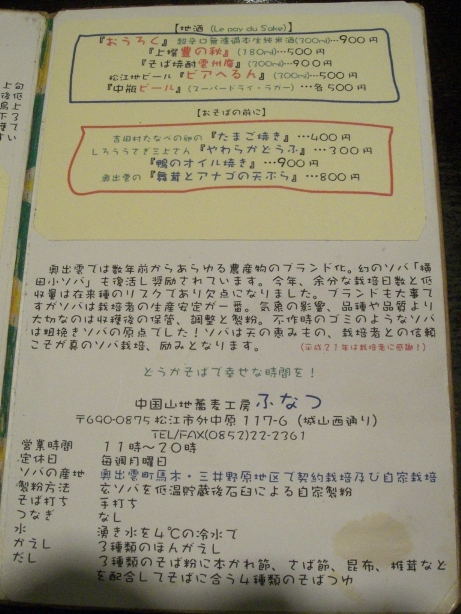 【地酒 (Le pay du Sake)】
『おうろく』 超辛口無濾過本生純米酒(300ml)…900円
『上撰豊の秋』 (180ml)…500円
『そば焼酎雲州庵』 (300ml)…900円
松江地ビール『ビアへるん』 (300ml)…500円
『中瓶ビール』(スーパードライ・ラガー) …各500円
【おそばの前に】
吉田村たなべの卵の『たまご焼き』…400円
しろうさぎ三上さん『やわらかとうふ』…300円
『鴨のオイル焼き』…900円
奥出雲の『舞茸とアナゴの天ぷら』…800円
奥出雲では数年前からあらゆる農産物のブランド化。幻のソバ「横
田小ソバ」も復活し奨励されています。今年、余分な栽培日数と低
収量は在来種のリスクであり欠点になりました。ブランドも大事で
すがソバは栽培者の生産安定が一番。気象の影響、品種や品質より
大切なのは収穫後の保管、調整と製粉。不作時のゴミのようなソバ
は粗挽きソバの原点でした!ソバは天の恵みもの、栽培者との信頼
こそが真のソバ栽培、励みとなります。 (平成21年は栽培者に感謝!)
とうかそばで幸せな時間を!
中国山地蕎麦工房 ふなつ
〒690-0875 松江市外中原 117-6 (城山西通り)
TEL/FAX(0852)22-2361
営業時間 11時~20時
定休日 毎週月曜日
ソバの産地 奥出雲町馬木・三井野原地区で契約栽培及び自家栽培
製粉方法 玄ソバを低温貯蔵後石臼による自家製粉
そば打ち 手打ち
つなぎ なし
水 湧き水を4℃の冷水で
かえし 3種類のほんがえし
だし 3種類のそば粉に本かれ節、さば節、昆布、椎茸など
を配合してそばに合う4種類のそばつゆ